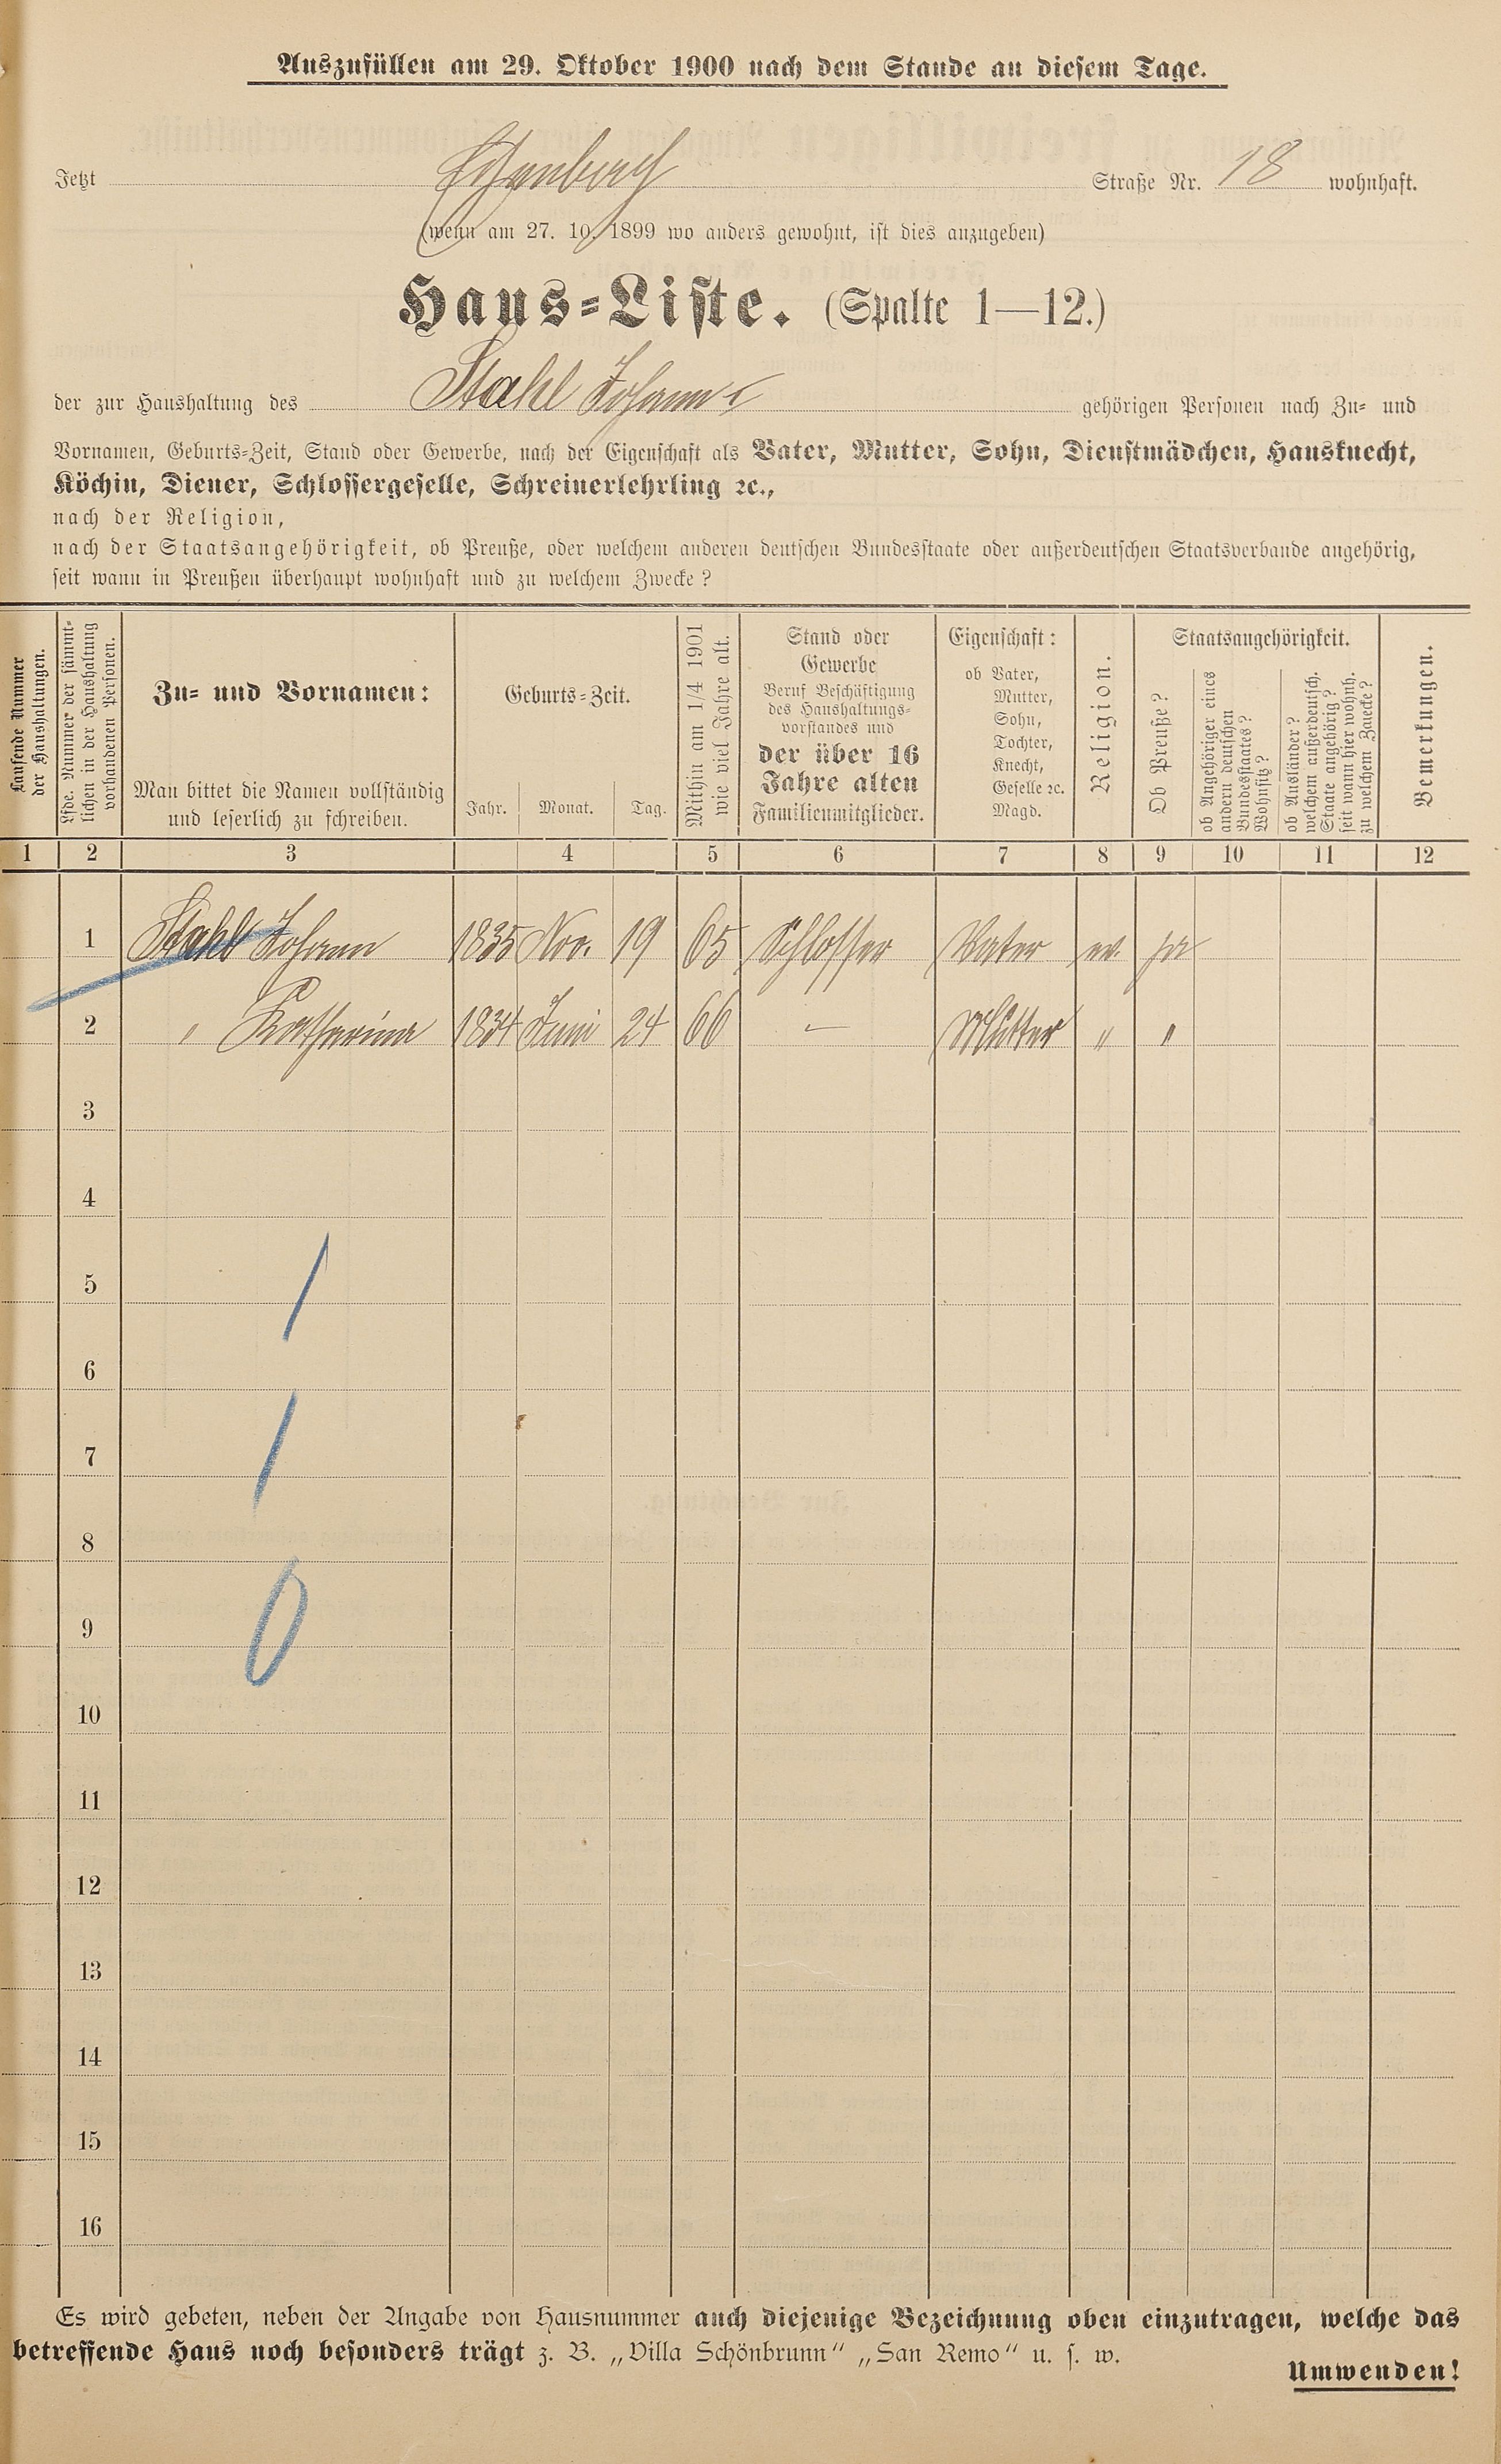 Auszufüllen am 29. Oktober 1900 nach dem Stande an diesem Tage.
Jetzt Straße Nr. 18 wohnhaft.
(wenn am 27. 10. 1899 wo anders gewohnt, ist dies anzugeben)
Haus=Liste. (Spalte 1—12.)
der zur Haushaltung des Stahl Johann gehörigen Personen nach Zu= und
Vornamen, Geburts=Zeit, Stand oder Gewerbe, nach der Eigenschaft als Vater, Mutter, Sohn, Dienstmädchen, Hausknecht,
Köchin, Diener, Schlossergeselle, Schreinerlehrling ꝛc.,
nach der Religion,
nach der Staatsangehörigkeit, ob Preuße, oder welchem anderen deutschen Bundesstaate oder außerdeutschen Staatsverbande angehörig,
seit wann in Preußen überhaupt wohnhaft und zu welchem Zwecke?
Laufende Nummer
der Haushaltungen.
Lfde. Nummer der sämmt=
lichen in der Haushaltung
vorhandenen Personen.
Zu= und Vornamen:
Man bittet die Namen vollständig
und leserlich zu schreiben.
Geburts=Zeit.
Jahr. Monat. Tag.
Mithin am 1/4 1901
wie viel Jahre alt.
Stand oder
Gewerbe
Beruf Beschäftigung
des Haushaltungs=
vorstandes und
der über 16
Jahre alten
Familienmitglieder.
Eigenschaft:
ob Vater,
Mutter,
Sohn,
Tochter,
Knecht,
Geselle ꝛc.
Magd.
Religion.
Staatsangehörigkeit.
Ob Preuße?
ob Angehöriger eines
andern deutschen
Bundesstaates?
Wohnsitz?
ob Ausländer?
welchem außerdeutsch.
Staate angehörig?
seit wann hier wohnh.
zu welchem Zwecke?
Bemerkungen.
1 2 3 4 5 6 7 8 9 10 11 12
1 Stahl Johann 1835 Nov. 19 65 Schlosser Vater ev. ja
2 " Katharina 1834 Juni 24 66 — Mutter " "
3
4
5
6
7
8
9
10
11
12
13
14
15
16
Es wird gebeten, neben der Angabe von Hausnummer auch diejenige Bezeichnung oben einzutragen, welche das
betreffende Haus noch besonders trägt z. B. „Villa Schönbrunn“ „San Remo“ u. s. w.
Umwenden!